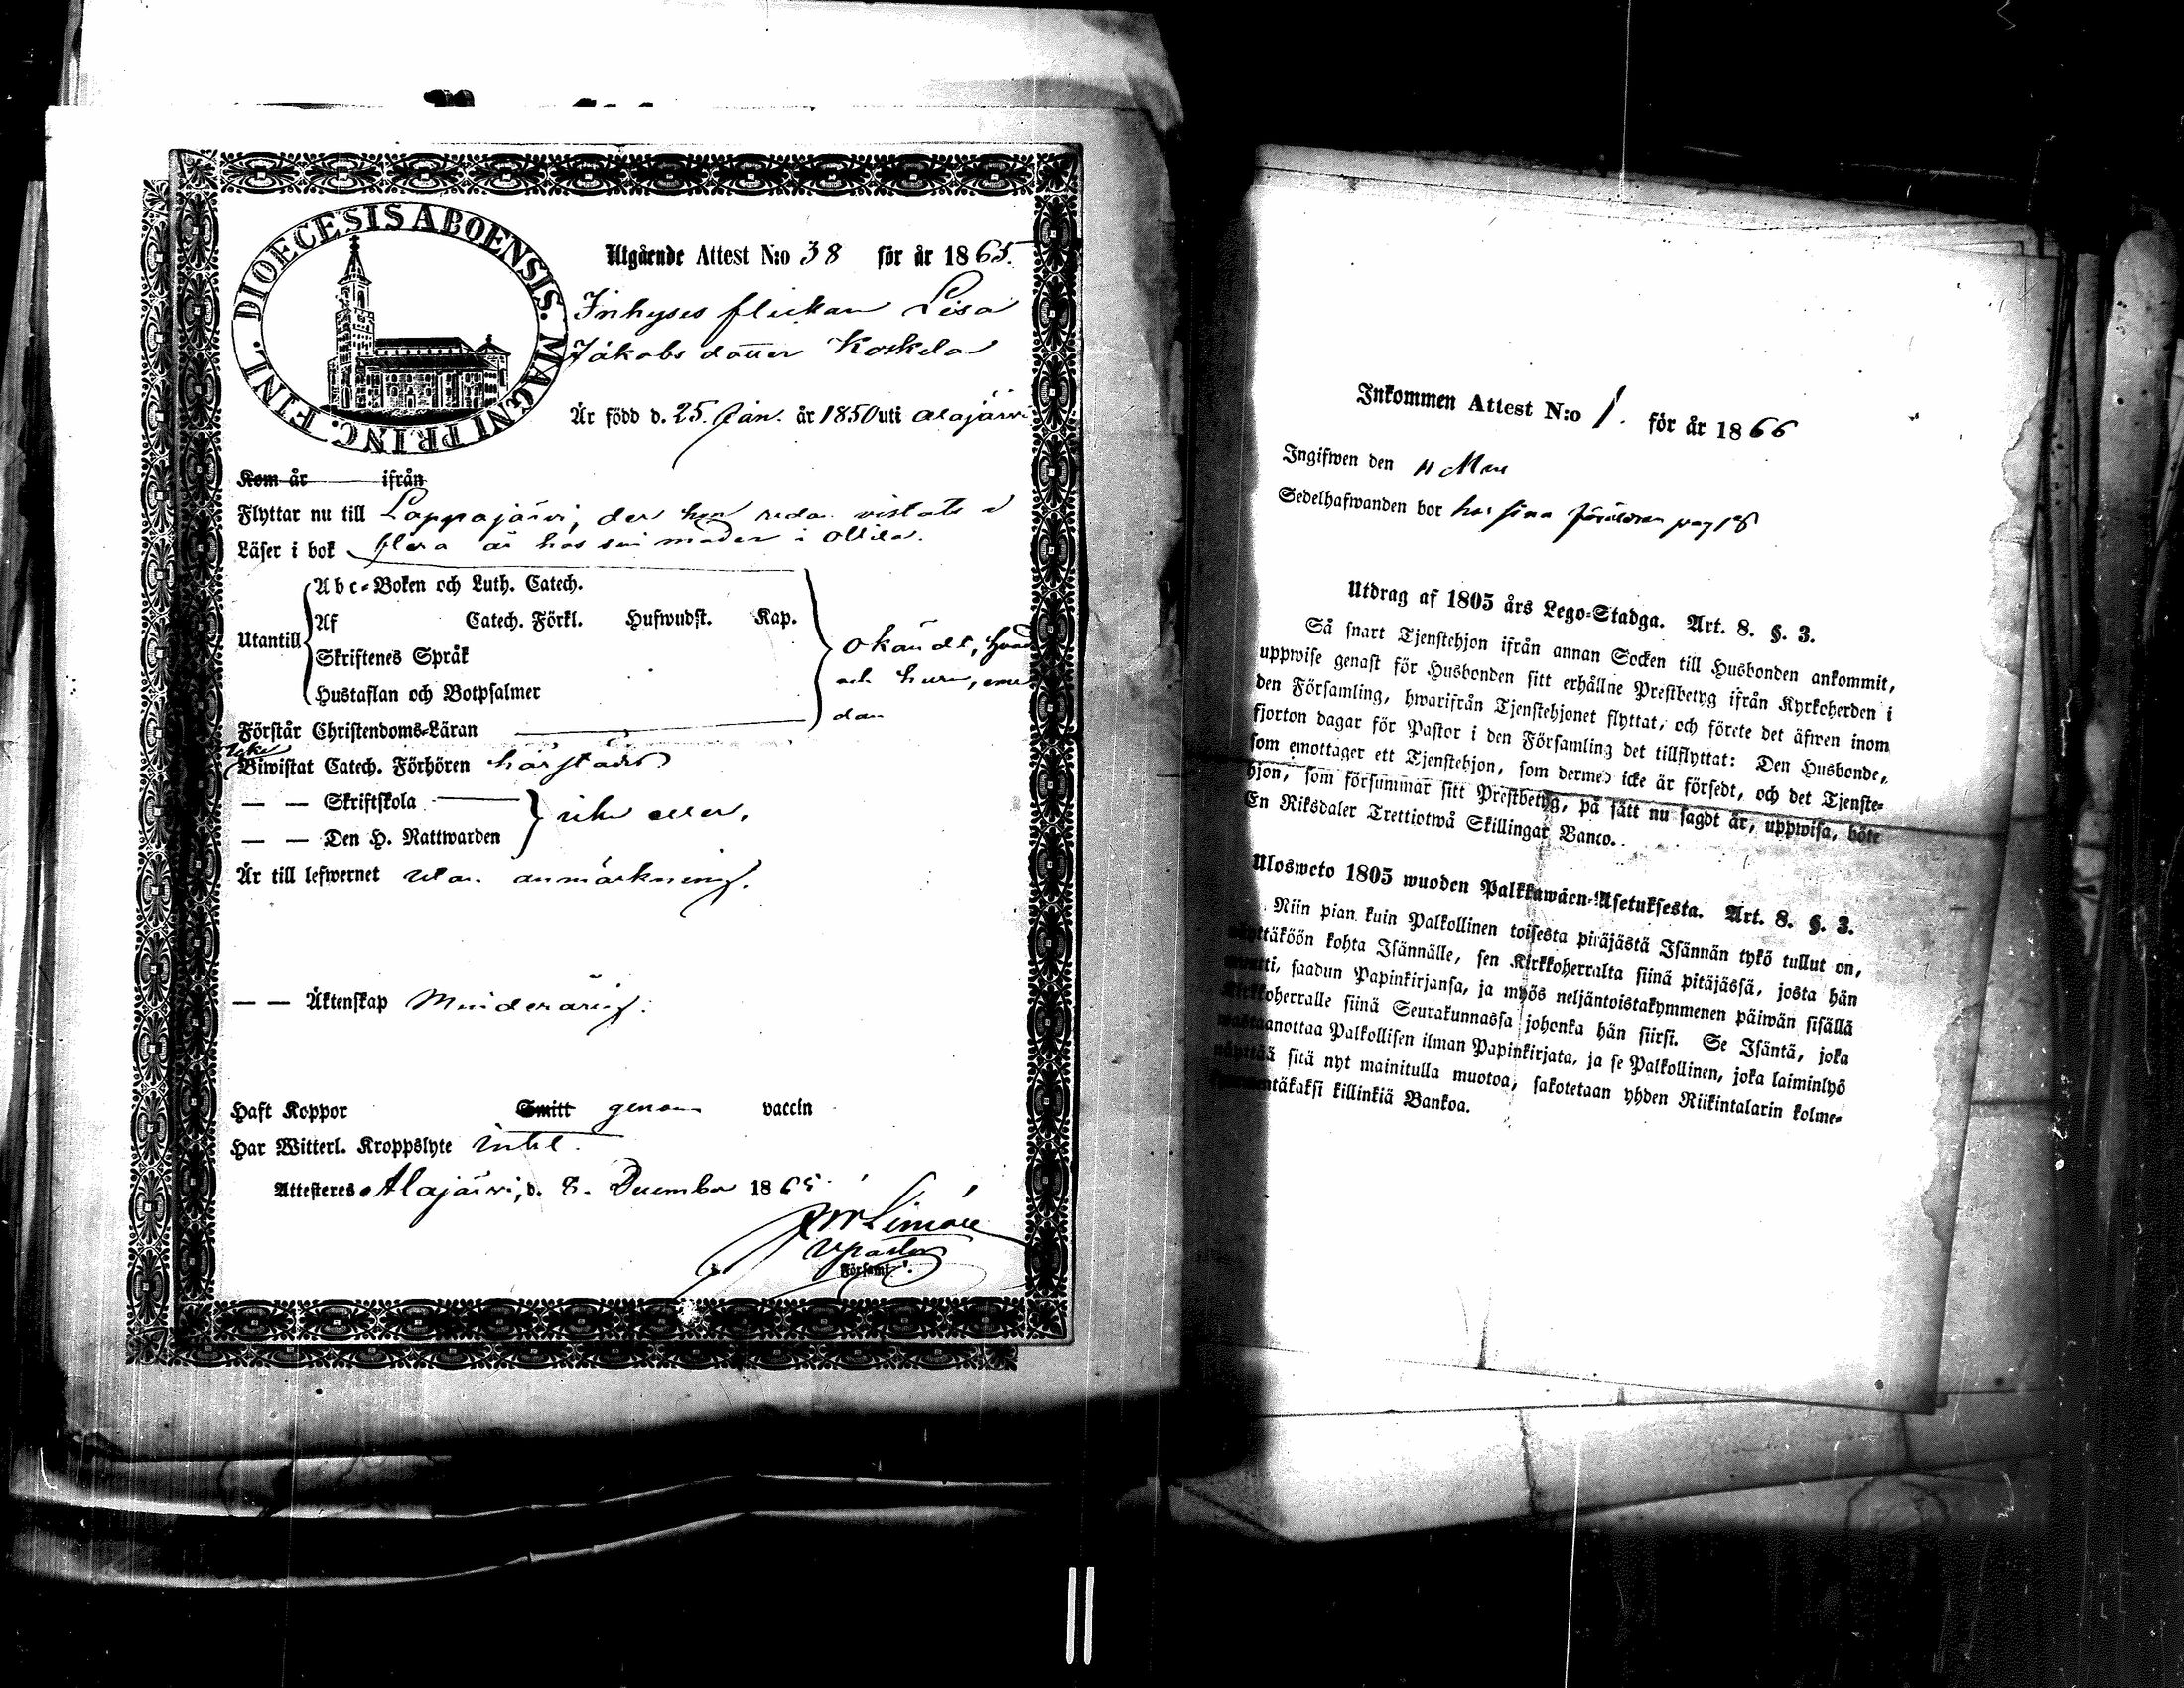 DIOECESIS ABOENSIS. MAGNI PRINC. FINL.
Utgående Attest N:o 38 för år 1865.
Inhyses flickan Lisa
Jakobs dotter Koskela
Är född d. 25. Jan. år 1850 uti Alajärvi
Kom år ifrån
Flyttar nu till Lappajärvi, der hon redan vistats i
Läser i bok flera år hos sin moder i Ollila.
Utantill
Abc-Boken och Luth. Catech.
Af Catech. Förkl. Hufwudst. Kap.
Skriftenes Språk
Hustaflan och Botpsalmer
okändt, hvad
och huru,
dan
Förstår Christendoms-Läran
icke
Biwistat Catech. Förhören härstädes
— — Skriftskola
— — Den H. Nattwarden
icke eller.
Är till lefwernet utan anmärkning.
— — Äktenskap Minderårig.
Haft Koppor Smitt genom vaccin
Har Witterl. Kroppslyte intet.
Attesteras Alajärvi, d. 8. December 1865.
Vpastor
Församl.
Inkommen Attest N:o 1. för år 1866
Ingifwen den 11
Sedelhafwanden bor hos sina föräldrar pag
Utdrag af 1805 års Lego-Stadga. Art. 8. §. 3.
Så snart Tjenstehjon ifrån annan Socken till Husbonden ankommit,
uppwise genast för Husbonden sitt erhållne Prestbetyg ifrån Kyrkoherden i
den Församling, hwarifrån Tjenstehjonet flyttat, och förete det äfwen inom
fjorton dagar för Pastor i den Församling det tillflyttat: Den Husbonde,
som emottager ett Tjenstehjon, som dermed icke är försedt, och det Tjenste-
hjon, som försummar sitt Prestbetyg, på sätt nu sagdt är, uppwisa, böte
En Riksdaler Trettiotwå Skillingar Banco.
Ulosweto 1805 wuoden Palkkawäen-Asetuksesta. Art. 8. §. 3.
Niin pian kuin Palkollinen toisesta pitäjästä Isännän tykö tullut on,
näyttäköön kohta Isännälle, sen Kirkkoherralta siinä pitäjässä, josta hän
muutti, saadun Papinkirjansa, ja myös neljäntoistakymmenen päiwän sisällä
Kirkkoherralle siinä Seurakunnassa johonka hän siirsi. Se Isäntä, joka
wastaanottaa Palkollisen ilman Papinkirjata, ja se Palkollinen, joka laiminlyö
näyttää sitä nyt mainitulla muotoa, sakotetaan yhden Riikintalarin kolme-
kymmentäkaksi killinkiä Bankoa.